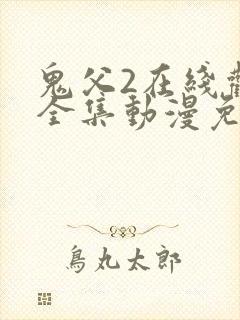 鬼父2在綫
全集動漫免
鳥丸太郎